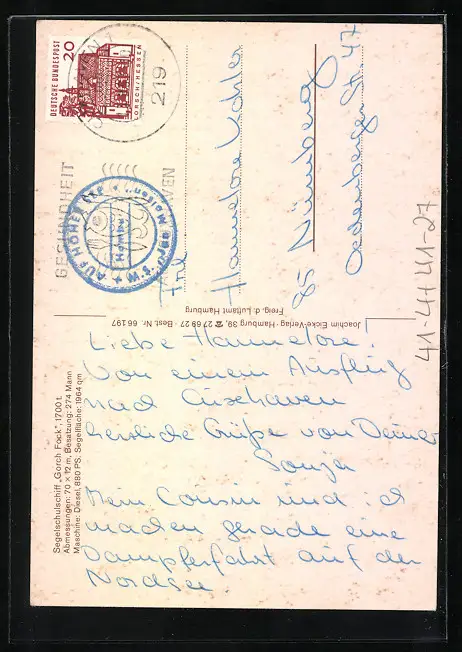 DEUTSCHE BUNDESPOST
20
LORSCH/HESSEN
219
GESUNDHEIT
AUF HOHER SEE
Frl.
Hannelore Vohler
85 Nürnberg
Oedenberger Str. 47
Joachim Eicke-Verlag · Hamburg 39, ☎ 27 69 27 · Best. Nr. 66 197
Freig. d. Luftamt Hamburg
Segelschulschiff „Gorch Fock", 1700 t.
Abmessungen: 70 × 12 m, Besatzung: 274 Mann
Maschine: Diesel, 880 PS. Segelfläche: 1964 qm
Liebe Hannelore!
Von einem Ausflug
nach Cuxhaven
herzliche Grüße von Deiner
Sonja
Mein Cousin und ich
machen gerade eine
Dampferfahrt auf der
Nordsee
41-4+41-27